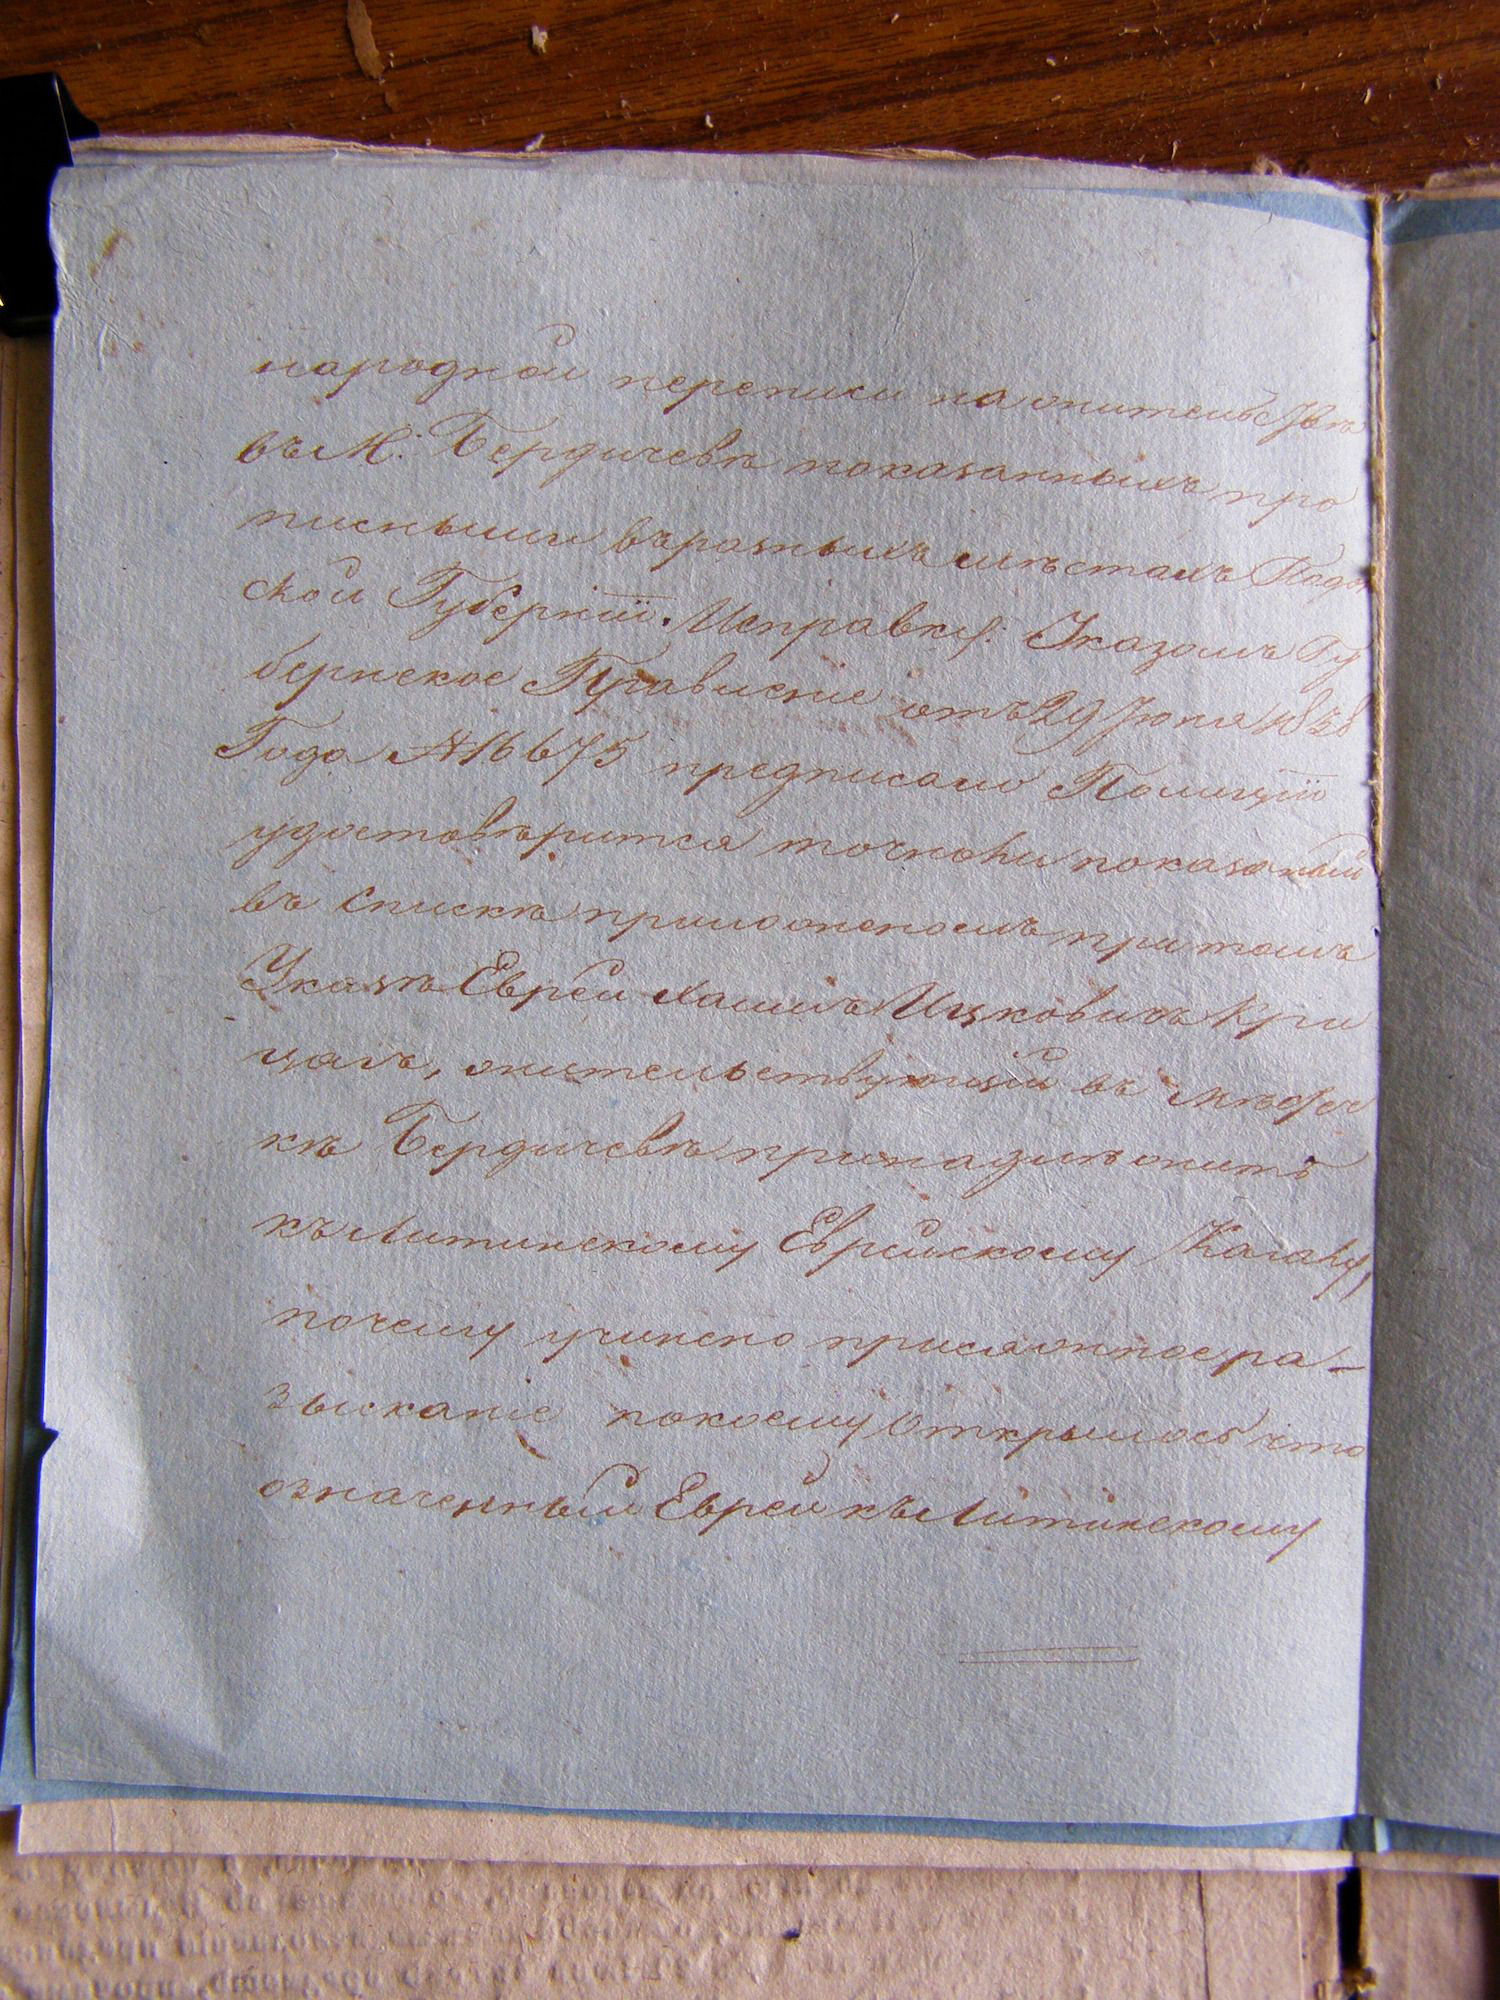 народной переписи на жительствѣ
въ М: Бердичевѣ показанныхъ про
писными въ разныхъ мѣстахъ Подо
ской Губерніи. Исправку: Указомъ Гу
бернское Правленіе отъ 29 Іюня 1838
Года № 16675 предписано Полиціи
удостовѣрится точноли показаный
въ Спискѣ приложеномъ при томъ
Указѣ Еврей Хаимъ Ицковичъ Кри
цалъ, жительствующій въ мѣстеч
кѣ Бердичевѣ принадлѣжитъ
къ Литинскому Еврейскому Кагалу,
почему учинено присяжное ра-
зысканіе покоему Открылось что
означенный Еврей къ Литинскому